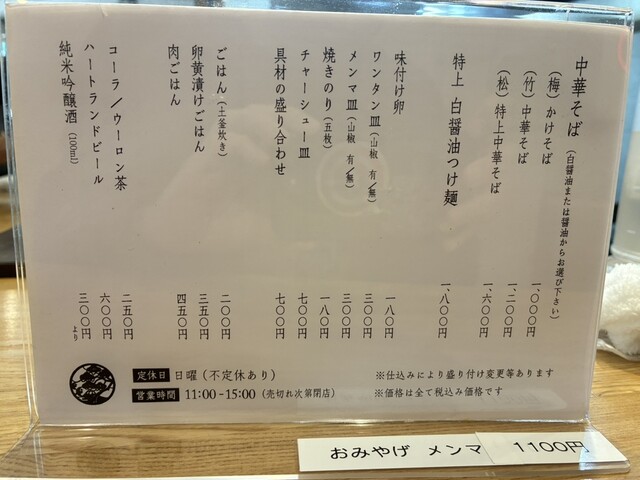 中華そば（白醤油または醤油からお選び下さい）
（梅）かけそば 一、〇〇〇円
（竹）中華そば 一、二〇〇円
（松）特上中華そば 一、六〇〇円
特上 白醤油つけ麺 一、八〇〇円
味付け卵 一八〇円
ワンタン皿（山椒 有／無） 三〇〇円
メンマ皿（山椒 有／無） 三〇〇円
焼きのり（五枚） 一八〇円
チャーシュー皿 七〇〇円
具材の盛り合わせ 七〇〇円
ごはん（土釜炊き） 二〇〇円
卵黄漬けごはん 三五〇円
肉ごはん 四五〇円
コーラ／ウーロン茶 二五〇円
ハートランドビール 六〇〇円
純米吟醸酒（100ml） 三〇〇円より
定休日 日曜（不定休あり）
営業時間 11:00-15:00（売切れ次第閉店）
※仕込みにより盛り付け変更等あります
※価格は全て税込み価格です
おみやげ メンマ 1100円